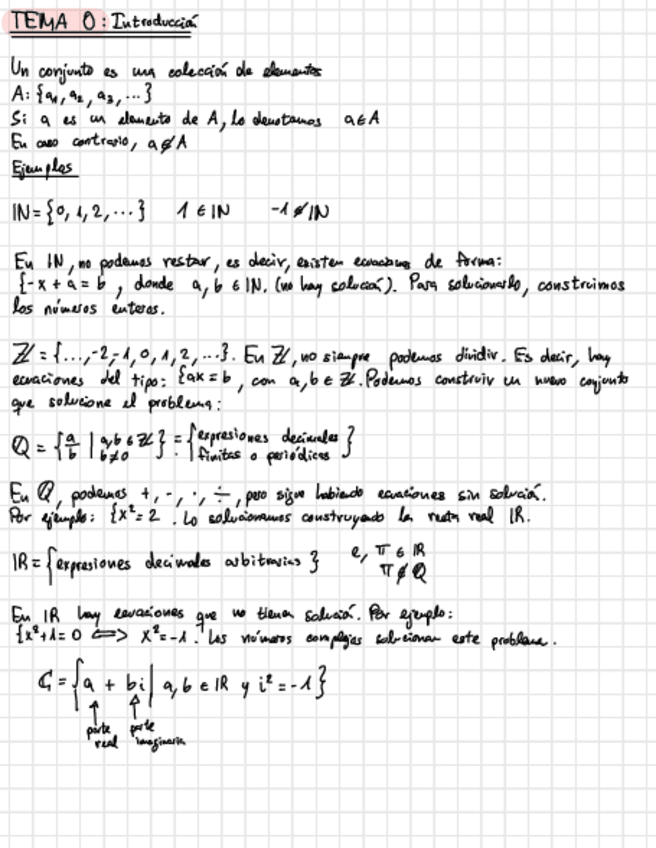 TEMA 0: Introducción
Un conjunto es una colección de elementos
A: {a₁, a₂, a₃, ...}
Si a es un elemento de A, lo denotamos a∈A
En caso contrario, a∉A
Ejemplos
ℕ = {0, 1, 2, ...} 1 ∈ ℕ -1 ∉ ℕ
En ℕ, no podemos restar, es decir, existen ecuaciones de forma:
{-x + a = b, donde a, b ∈ ℕ. (no hay solución). Para solucionarlo, construimos
los números enteros.
ℤ = {..., -2, -1, 0, 1, 2, ...}. En ℤ, no siempre podemos dividir. Es decir, hay
ecuaciones del tipo: {ax = b, con a, b ∈ ℤ. Podemos construir un nuevo conjunto
que solucione el problema:
ℚ = {a/b | a, b ∈ ℤ b≠0} = {expresiones decimales finitas o periódicas}
En ℚ, podemos +, -, ·, ÷, pero sigue habiendo ecuaciones sin solución.
Por ejemplo: {x² = 2. Lo solucionamos construyendo la recta real ℝ.
ℝ = {expresiones decimales arbitrarias} e, π ∈ ℝ
π ∉ ℚ
En ℝ hay ecuaciones que no tienen solución. Por ejemplo:
{x²+1 = 0 ⟺ x² = -1. Los números complejos solucionan este problema.
ℂ = {a + bi | a, b ∈ ℝ y i² = -1}
parte real
parte imaginaria